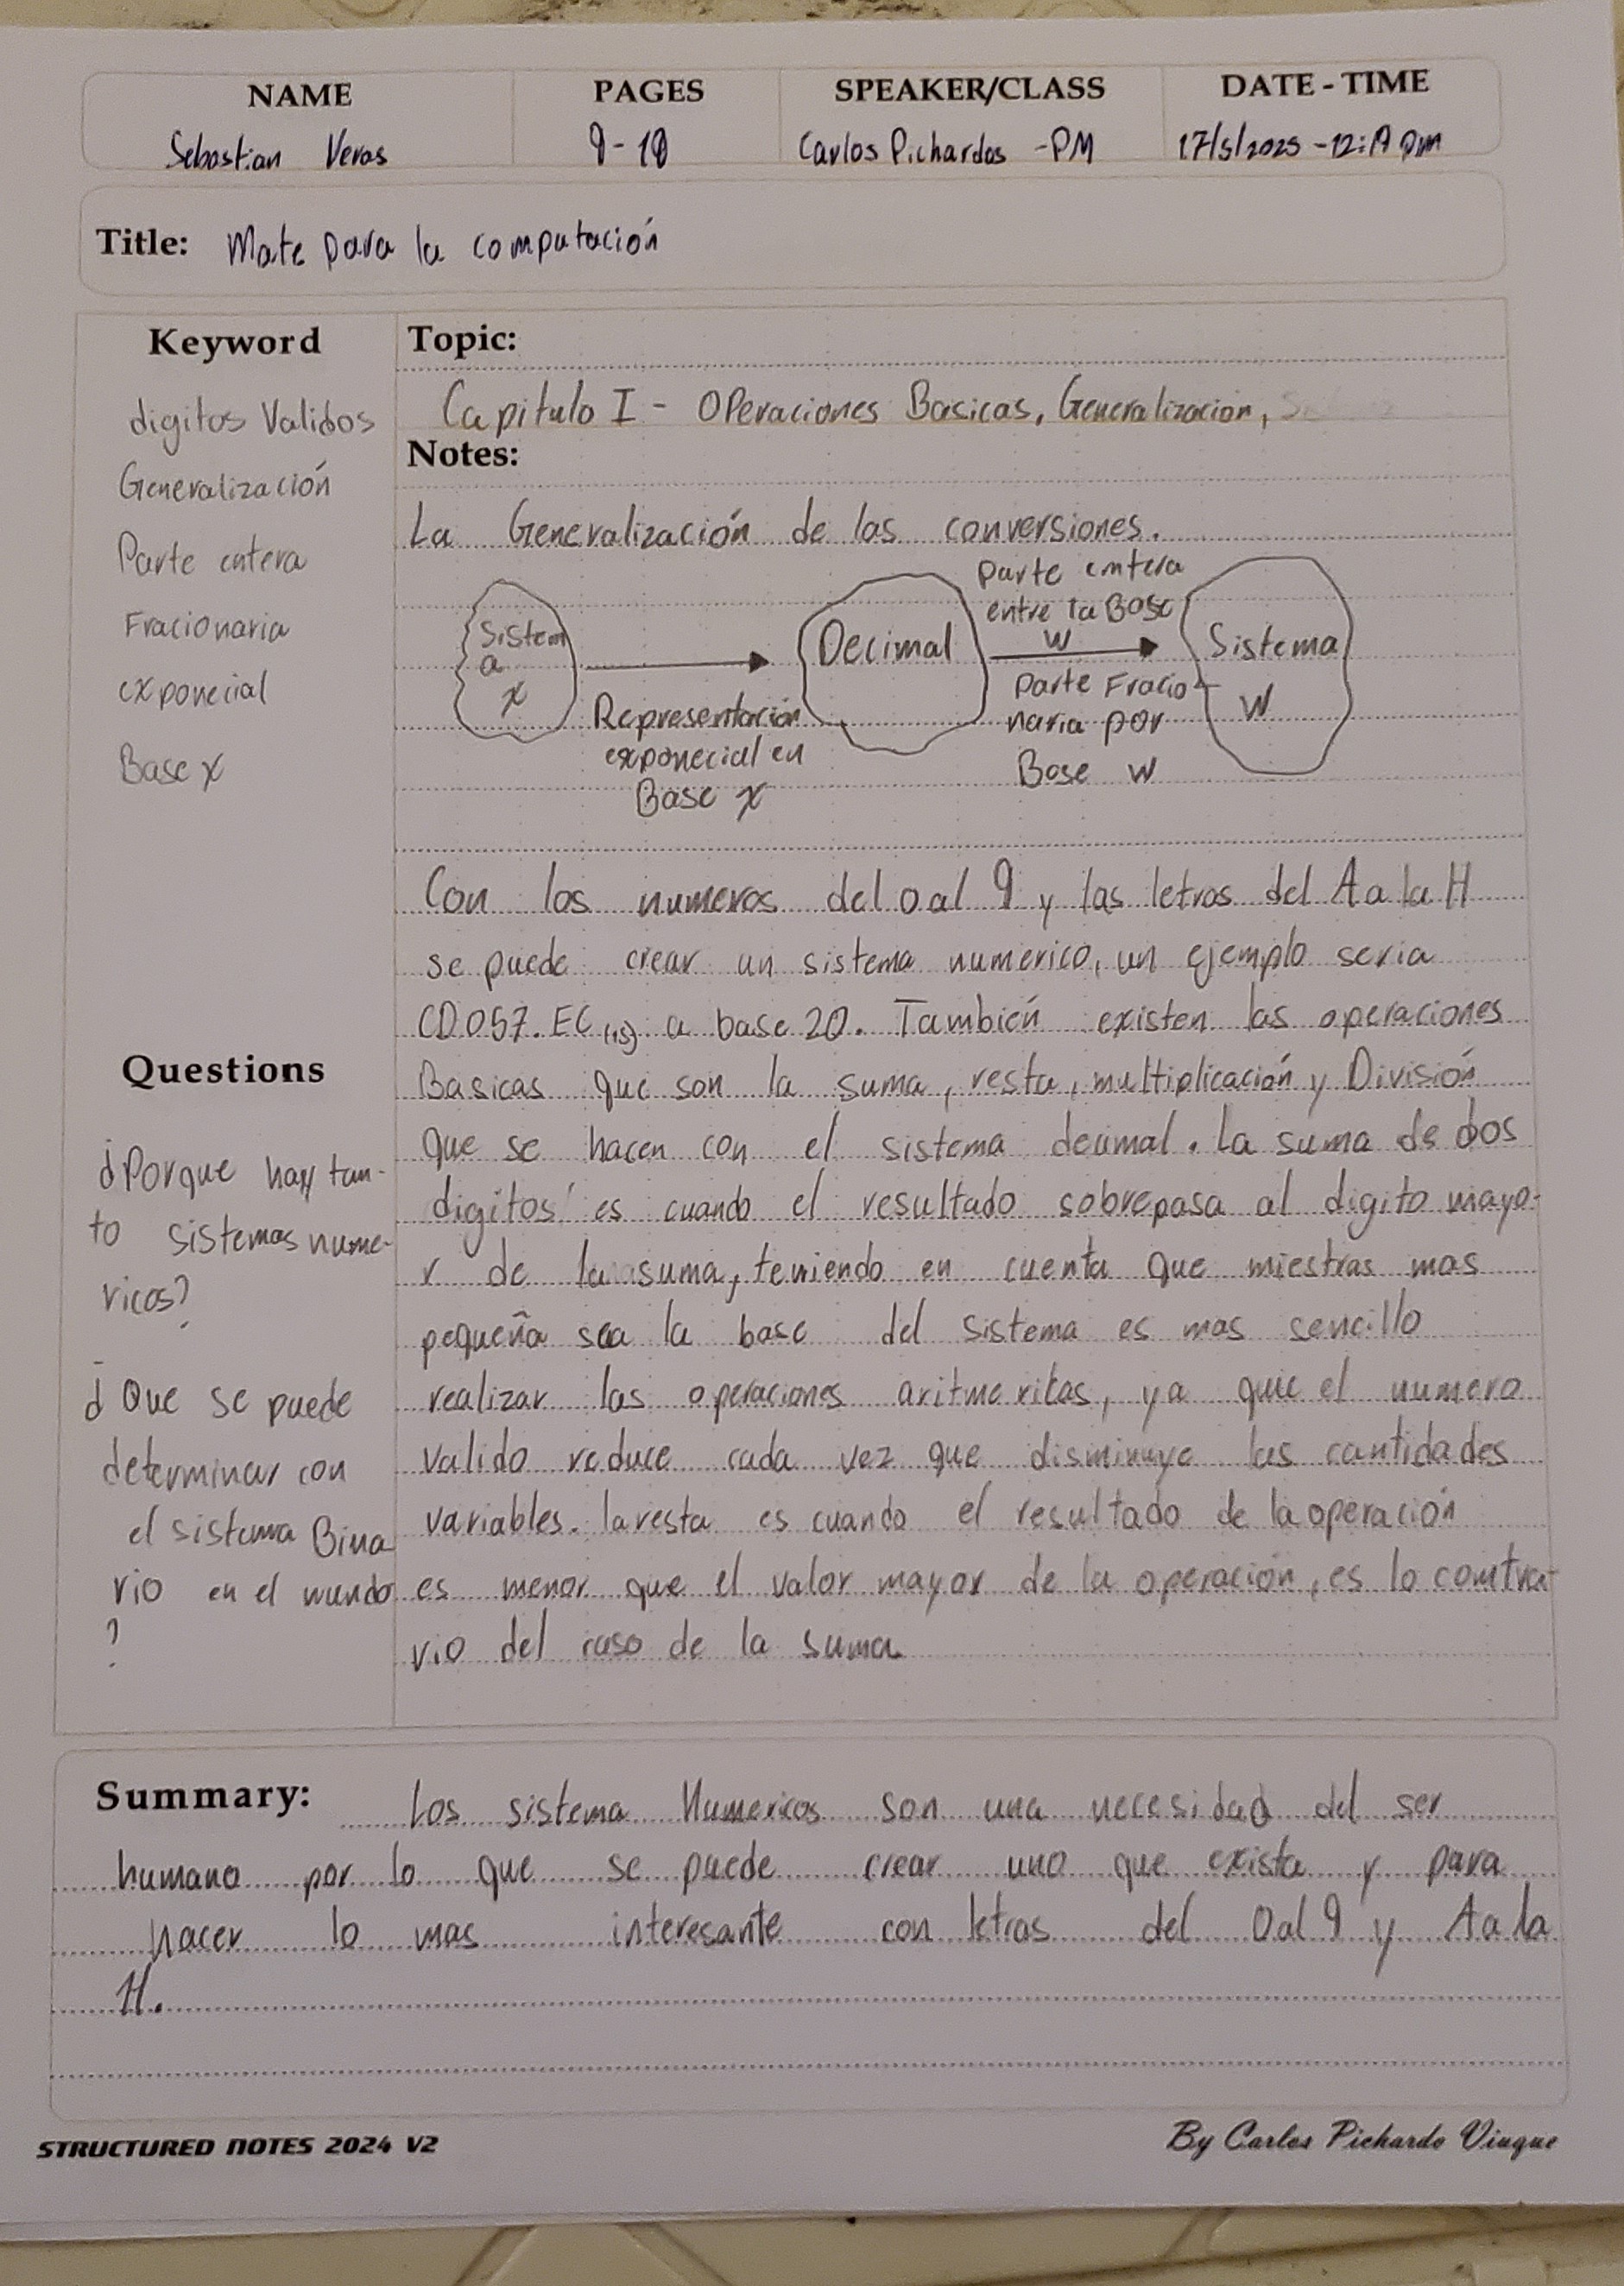 NAME PAGES SPEAKER/CLASS DATE - TIME
Sebastian Veras 9-10 Carlos Pichardos -PM 17/5/2025 -12:19 pm
Title: Mate para la computación
Keyword
digitos Validos
Generalización
Parte entera
Fracionaria
exponecial
Base x
Topic:
Capitulo I - Operaciones Basicas, Generalización,
Notes:
La Generalización de las conversiones.
Sistem
a
x
Representación
exponecial en
Base x
Decimal
parte entera
entre la Base
w
parte Fracio
naria por
Base w
Sistema
W
Con los numeros del 0 al 9 y las letras del A a la H
se puede crear un sistema numerico, un ejemplo seria
CD057.EC(15) a base 20. También existen las operaciones
Basicas que son la suma, resta, multiplicación y División
que se hacen con el sistema decimal. la suma de dos
digitos es cuando el resultado sobrepasa al digito mayo-
r de la suma, teniendo en cuenta que miestras mas
pequeña sea la base del sistema es mas sencillo
realizar las operaciones aritmeritas, ya que el numero
valido reduce cada vez que disminuye las cantidades
variables. la resta es cuando el resultado de la operación
es menor que el valor mayor de la operación, es lo contra-
rio del caso de la suma
Questions
¿Porque hay tan-
to sistemas nume-
ricos?
¿Que se puede
determinar con
el sistema Bina
rio en el mundo
?
Summary: Los sistema Numericos son una necesidad del ser
humano por lo que se puede crear uno que exista y para
hacer lo mas interesante con letras del 0 al 9 y A a la
H.
STRUCTURED NOTES 2024 V2
By Carlos Pichardo Viuque